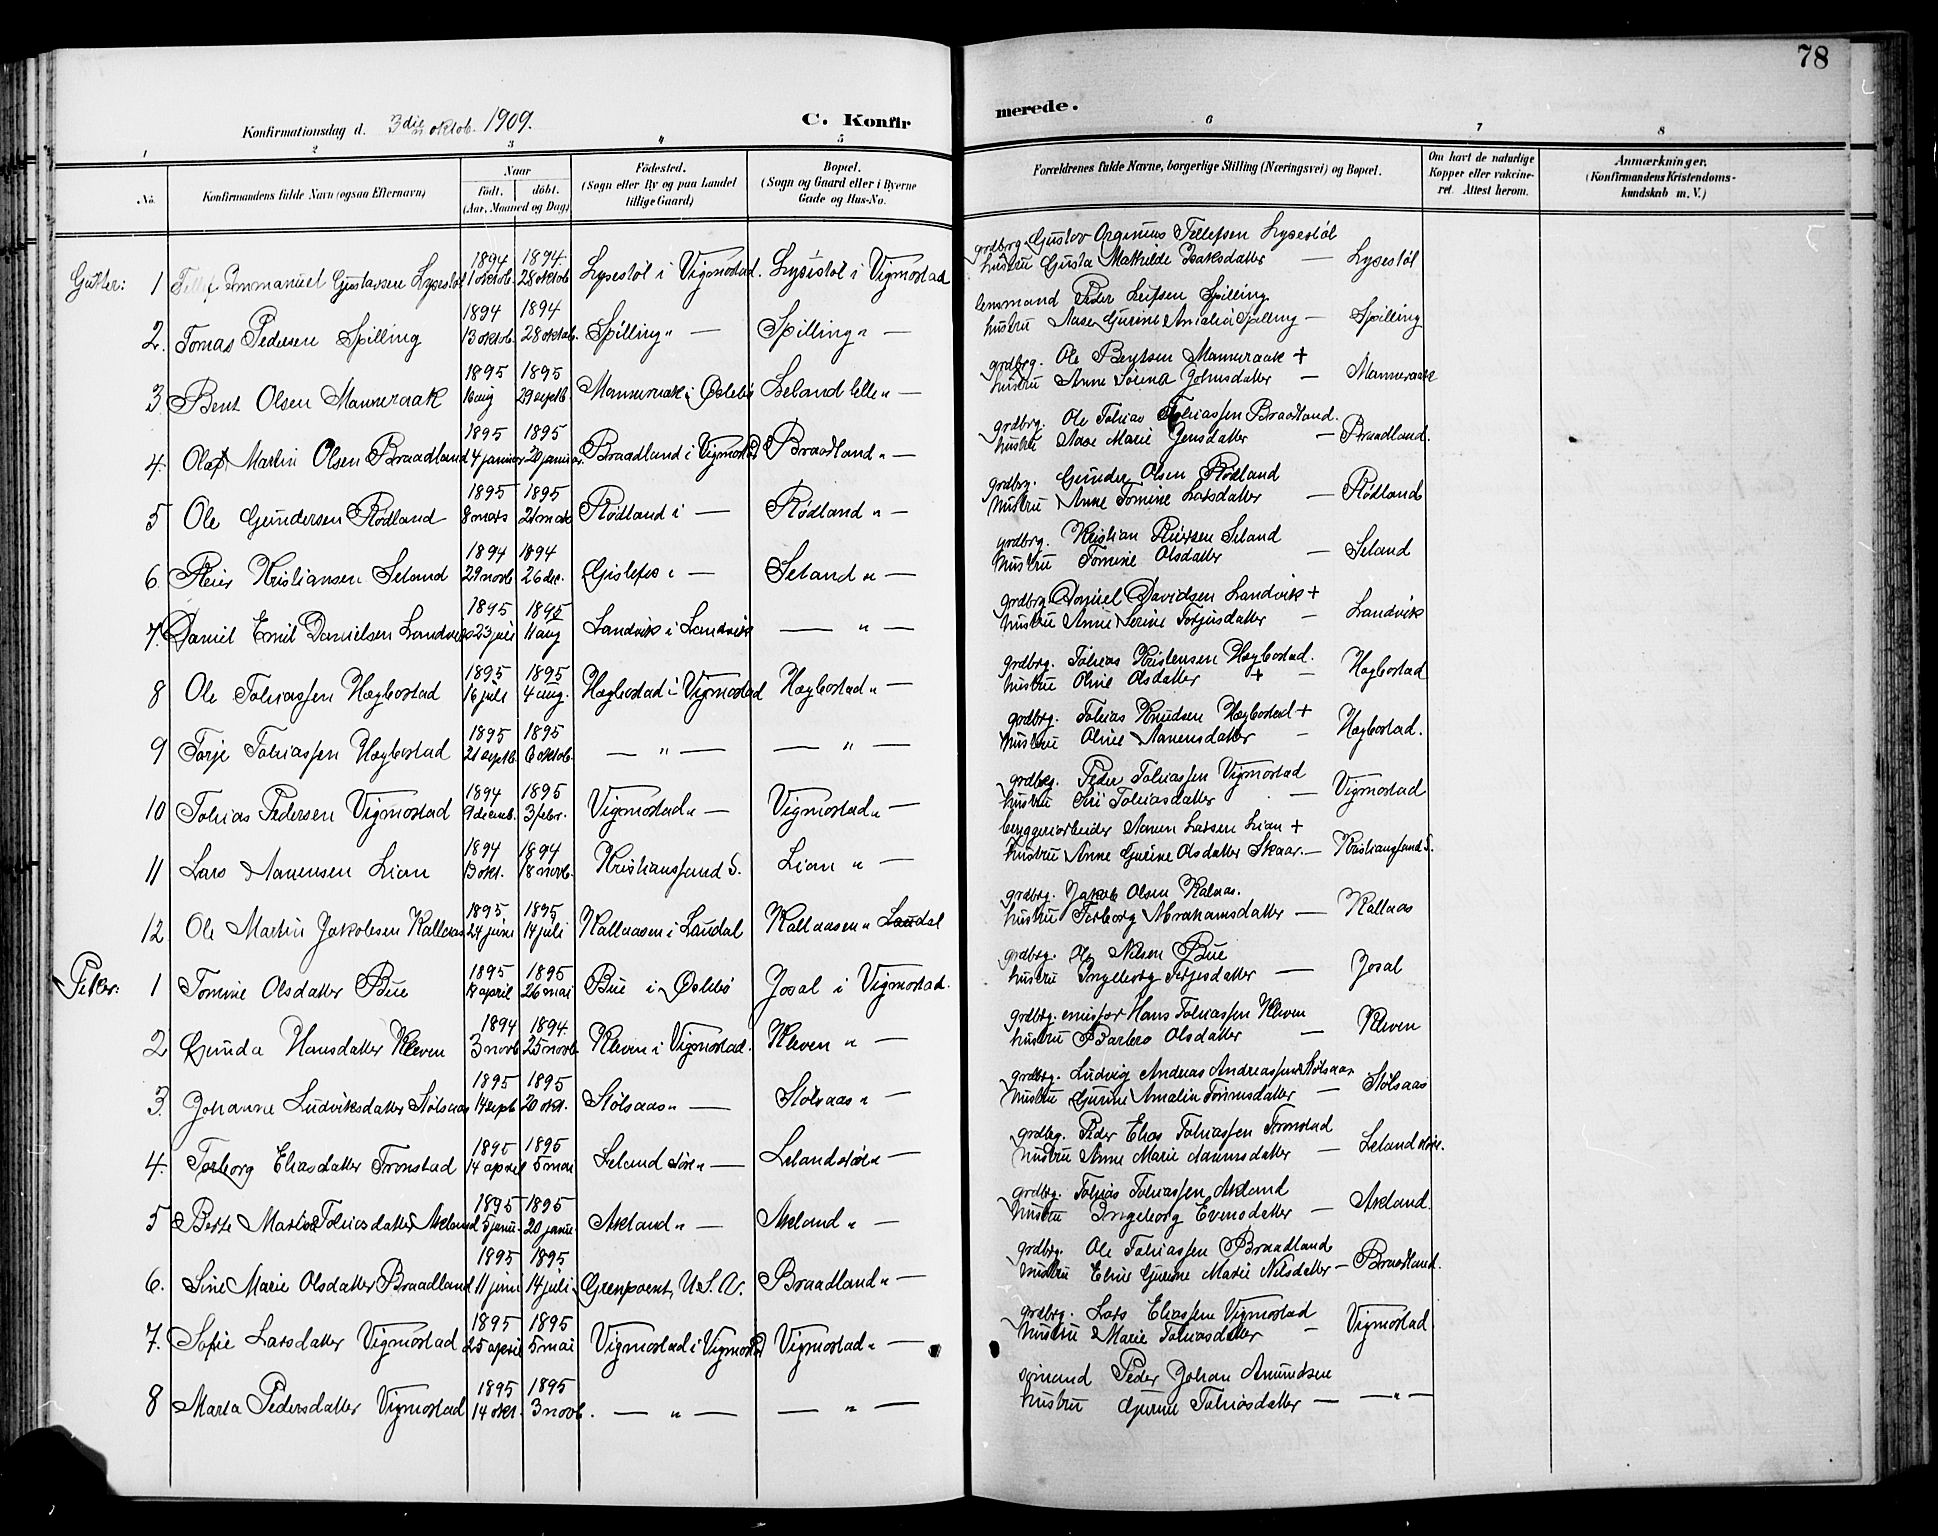 78
Konfirmationsdag d. 3die oktob. 1909.
C. Konfir
merede.
1 2 3 4 5 6 7 8
No.
Konfirmandens fulde Navn (ogsaa Efternavn)
Naar
født. døbt.
(Aar, Maaned og Dag)
Fødested.
(Sogn eller By og paa Landet
tillige Gaard)
Bopæl.
(Sogn og Gaard eller i Byerne
Gade og Hus-No.
Forældrenes fulde Navne, borgerlige Stilling (Næringsvei) og Bopæl.
Om havt de naturlige
Kopper eller vaccine-
ret. Attest herom.
Anmærkninger.
(Konfirmandens Kristendoms-
kundskab m. V.)
Gutter: 1 Tellef Emmanuel Gustavsen Lysestøl 1894 1 oktob. 1894. 28 oktob. Lysestøl i Vigmostad. Lysestøl i Vigmostad
grdbrg. Gustav Arganius Tellefsen Lysestøl
hustru Gusta Mathilde Isaksdatter — Lysestøl
2. Tomas Pedersen Spilling 1894 13 oktob. 1894 28 oktob. Spilling " — Spilling " —
lensmand Peder Leifsen Spilling
hustru Aase Gurine Amalia Spilling — Spilling
3 Bent Olsen Manneraak 1895 16 aug 1895 29 septb. Manneraak i Øslebø Leland lille " —
grdbrg. Ole Bentsen Manneraak +
hustru Anne Sørine Johnsdatter — Manneraak
4. Olaf Martin Olsen Braadland 1895 4 januar 1895 20 januar. Braadland i Vigmostad Braadland " —
grdbrg. Ole Tobias Tobiassen Braadland.
hustru Aase Marie Jensdatter — Braadland.
5 Ole Gundersen Rødland 1895 8 mars 1895 21 mars Rødland i — Rødland " —
grdbrg. Gunder Olsen Rødland
hustru Anne Tomine Larsdatter — Rødland
6. Reier Kristiansen Seland 1894 29 novb 1894 26 dec. Gislefos i — Seland " —
grdbrg. Kristian Reiersen Seland
hustru Tomine Olsdatter — Seland
7. Daniel Emil Danielsen Landvik 1895 23 juli 1895 11 aug Landvik i Landvik — " —
grdbrg Daniel Davidsen Landvik +
hustru Anne Serine Torjusdatter — Landvik
8 Ole Tobiassen Hægbostad 1895 16 juli 1895 4 aug. Hægbostad i Vigmostad Hægbostad " —
grdbrg. Tobias Kristensen Hægbostad.
hustru Oline Olsdatter + — Hægbostad
9 Torje Tobiassen Hægbostad 1895 21 septb. 1895 6 oktob. — " — — " —
grdbrg. Tobias Knudsen Hægbostad +
hustru Oline Aanensdatter — Hægbostad.
10 Tobias Pedersen Vigmostad 1894 9 decemb. 1895 3 febr. Vigmostad " — Vigmostad " —
grdbrg. Peder Tobiassen Vigmostad
hustru Siri Tobiasdatter — Vigmostad
11 Lars Aanensen Lian 1894 13 okt. 1894 18 novb. Kristianssand S. Lian " —
bryggeriarbeider Aanen Larsen Lian +
hustru Anne Gurine Olsdatter Skaar. — Kristianssand S.
12 Ole Martin Jakobsen Kallaas 1895 24 juni 1895 14 juli Kallaasen i Laudal Kallaasen " Laudal
grdbrg. Jakob Olsen Kalaas.
hustru Torborg Abrahamsdatter — Kallaas
Piker: 1 Tomine Olsdatter Bue 1895 18 april 1895 26 mai Bue i Øslebø Josal i Vigmostad.
grdbrg. Ole Nilsen Bue
hustru Ingeborg Terjesdatter — Josal
2 Gunda Hansdatter Kleven 1894 3 novb 1894. 25 novb. Kleven i Vigmostad. Kleven " —
grdbrg. emissær Hans Tobiassen Kleven
hustru Barbro Olsdatter — Kleven
3. Johanne Ludviksdatter Stølsaas 1895 14 septb 1895 20 okt. Stølsaas " — Stølsaas " —
grdbrg. Ludvig Andreas Andreassen Stølsaas
hustru Gurine Amalia Tønnesdatter — Stølsaas
4. Torborg Eliasdatter Tronstad 1895 14 april 1895 5 mai Leland støre " — Leland støre " —
grdbrg. Peder Elias Tobiassen Tronstad
hustru Anne Marie Aanensdatter — Leland støre.
5 Berte Martine Tobiasdatter Akland 1895 5 janu. 1895 20 janu. Akland " — Akland " —
grdbrg. Tobias Tobiassen Akland
hustru Ingeborg Evensdatter — Akland.
6. Sine Marie Olsdatter Braadland 1895 11 juni 1895 14 juli Grenpoent, U.S.A. Braadland " —
grdbrg. Ole Tobiassen Braadland
hustru Eline Gurine Marie Nilsdatter — Braadland.
7. Sofie Larsdatter Vigmostad 1895 25 april 1895 5 mai Vigmostad i Vigmostad Vigmostad " —
grdbrg. Lars Eliassen Vigmostad
hustru Marie Tobiasdatter — Vigmostad
8 Marta Pedersdatter Vigmostad 1895 14 okt. 1895 3 novb. — " — — " —
sømand Peder Johan Amundsen
hustru Gurine Tobiasdatter — — " —